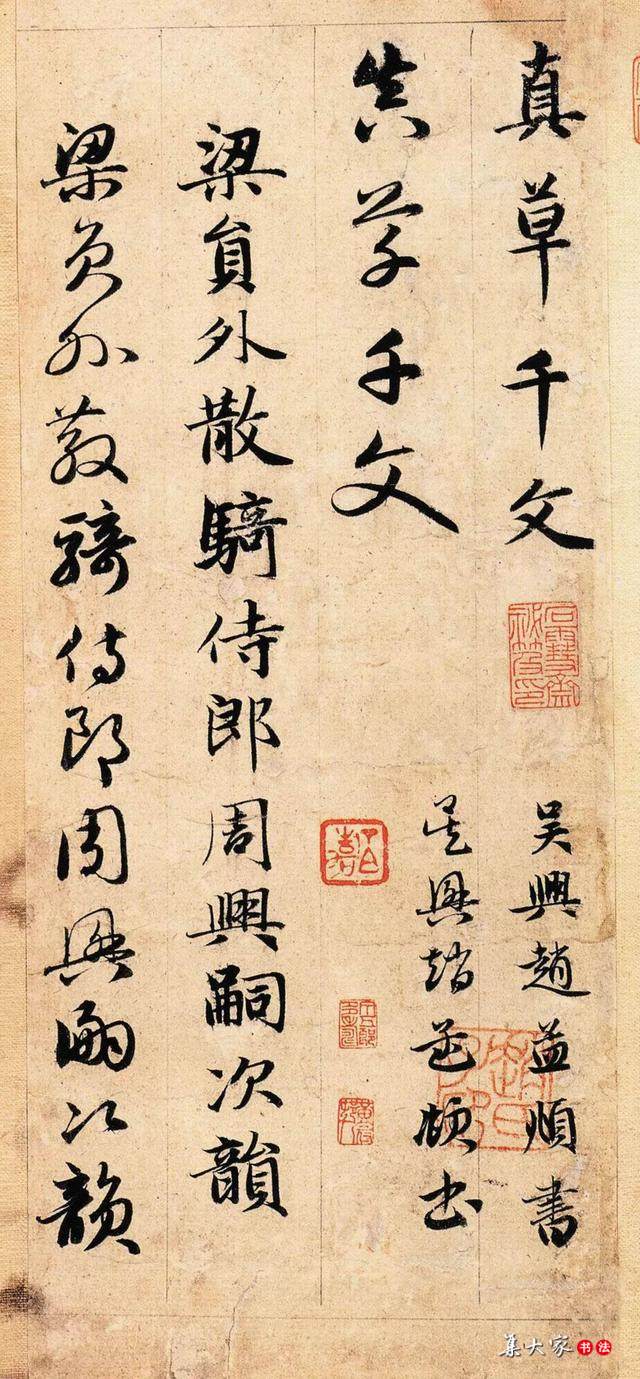 真草千文 吴興趙孟頫書
真草千文 吴興趙孟頫書
梁員外散騎侍郎周興嗣次韻
梁員外散騎侍郎周興嗣次韻
集大家书法